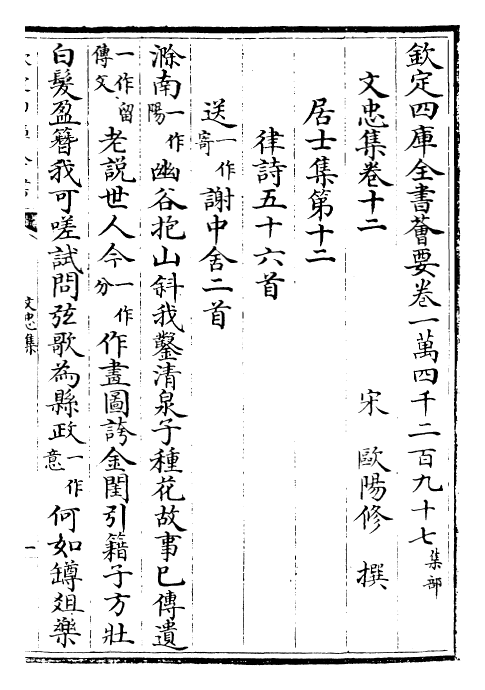 欽定四庫全書薈要卷一萬四千二百九十七集部
文忠集卷十二
宋 歐陽修 撰
居士集第十二
律詩五十六首
送一作寄謝中舍二首
滁南一作陽幽谷抱山斜我鑿清泉子種花故事已傳遺
一作留傳文老説世人今一作分作畫圖誇金閨引籍子方壯
白髮盈簪我可嗟試問弦歌為縣政一作意何如罇俎樂
文忠集
一